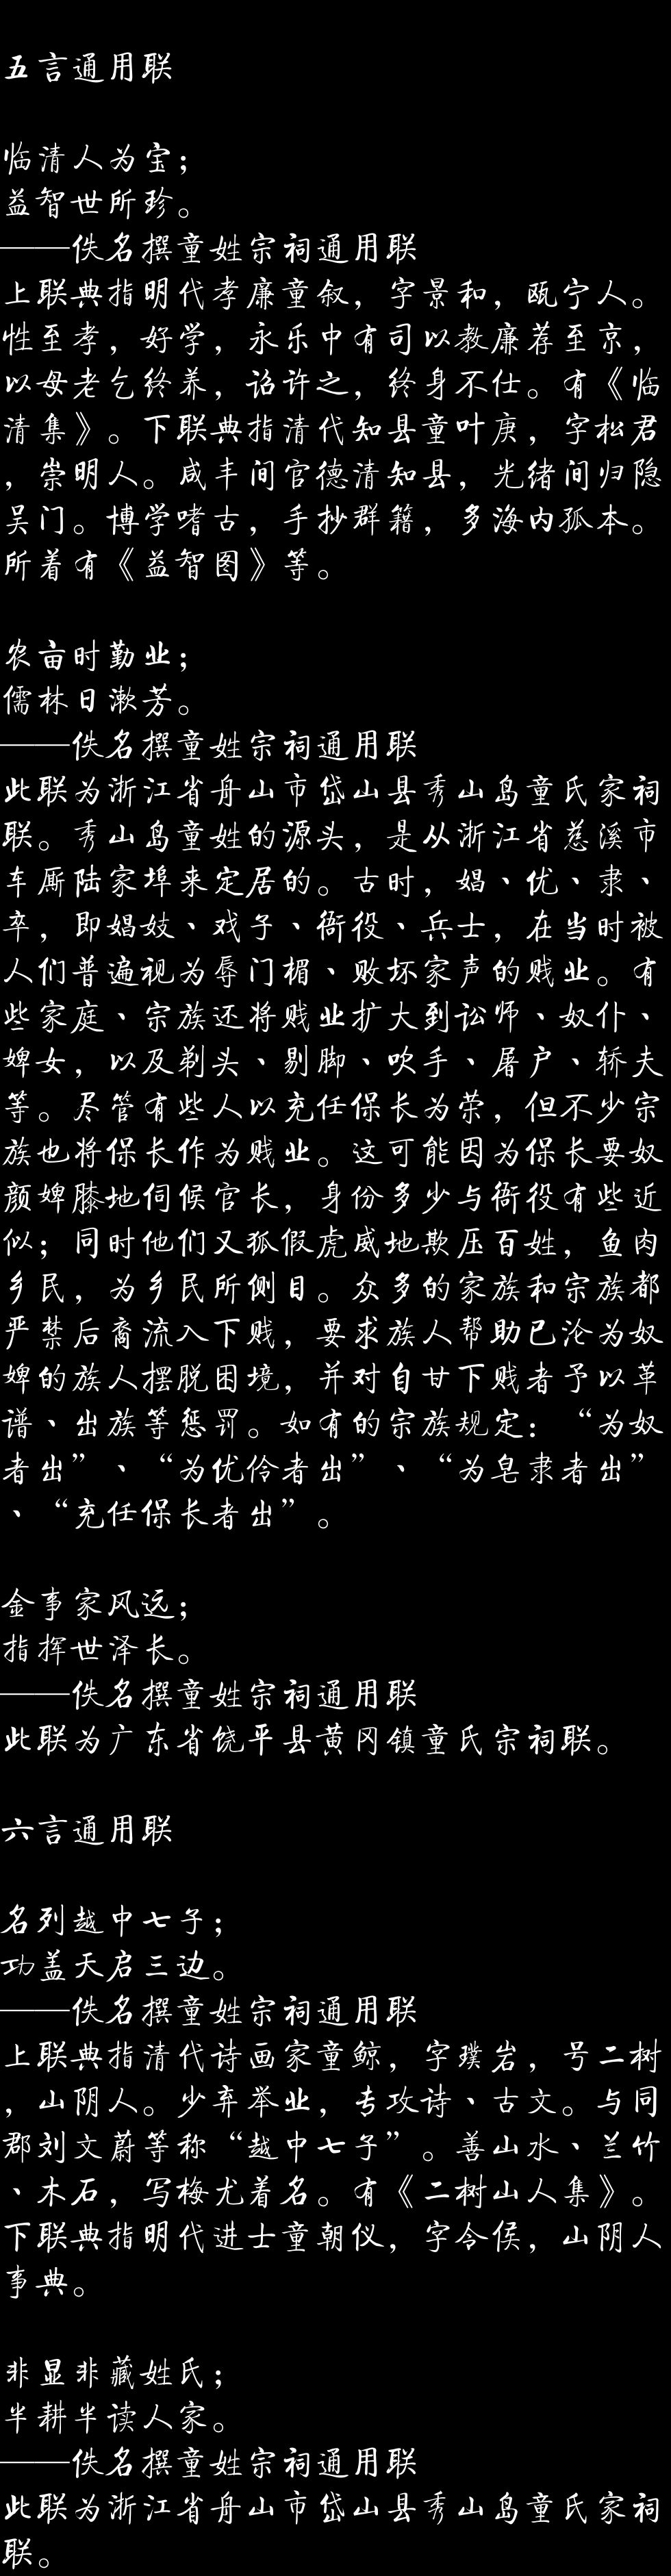 五言通用联
临清人为宝；
益智世所珍。
——佚名撰童姓宗祠通用联
上联典指明代孝廉童叙，字景和，瓯宁人。
性至孝，好学，永乐中有司以教廉荐至京，
以母老乞终养，诏许之，终身不仕。有《临
清集》。下联典指清代知县童叶庚，字松君
，崇明人。咸丰间官德清知县，光绪间归隐
吴门。博学嗜古，手抄群籍，多海内孤本。
所着有《益智图》等。
农亩时勤业；
儒林日漱芳。
——佚名撰童姓宗祠通用联
此联为浙江省舟山市岱山县秀山岛童氏家祠
联。秀山岛童姓的源头，是从浙江省慈溪市
车厮陆家埠来定居的。古时，娼、优、隶、
卒，即娼妓、戏子、衙役、兵士，在当时被
人们普遍视为辱门楣、败坏家声的贱业。有
些家庭、宗族还将贱业扩大到讼师、奴仆、
婢女，以及剃头、剔脚、吹手、屠户、轿夫
等。尽管有些人以充任保长为荣，但不少宗
族也将保长作为贱业。这可能因为保长要奴
颜婢膝地伺候官长，身份多少与衙役有些近
似；同时他们又狐假虎威地欺压百姓，鱼肉
乡民，为乡民所侧目。众多的家族和宗族都
严禁后裔流入下贱，要求族人帮助已沦为奴
婢的族人摆脱困境，并对自甘下贱者予以革
谱、出族等惩罚。如有的宗族规定：“为奴
者出”、“为优伶者出”、“为皂隶者出”
、“充任保长者出”。
金事家风远；
指挥世泽长。
——佚名撰童姓宗祠通用联
此联为广东省饶平县黄冈镇童氏宗祠联。
六言通用联
名列越中七子；
功盖天启三边。
——佚名撰童姓宗祠通用联
上联典指清代诗画家童鲸，字璞岩，号二树
，山阴人。少弃举业，专攻诗、古文。与同
郡刘文蔚等称“越中七子”。善山水、兰竹
、木石，写梅尤着名。有《二树山人集》。
下联典指明代进士童朝仪，字令侯，山阴人
事典。
非显非藏姓氏；
半耕半读人家。
——佚名撰童姓宗祠通用联
此联为浙江省舟山市岱山县秀山岛童氏家祠
联。